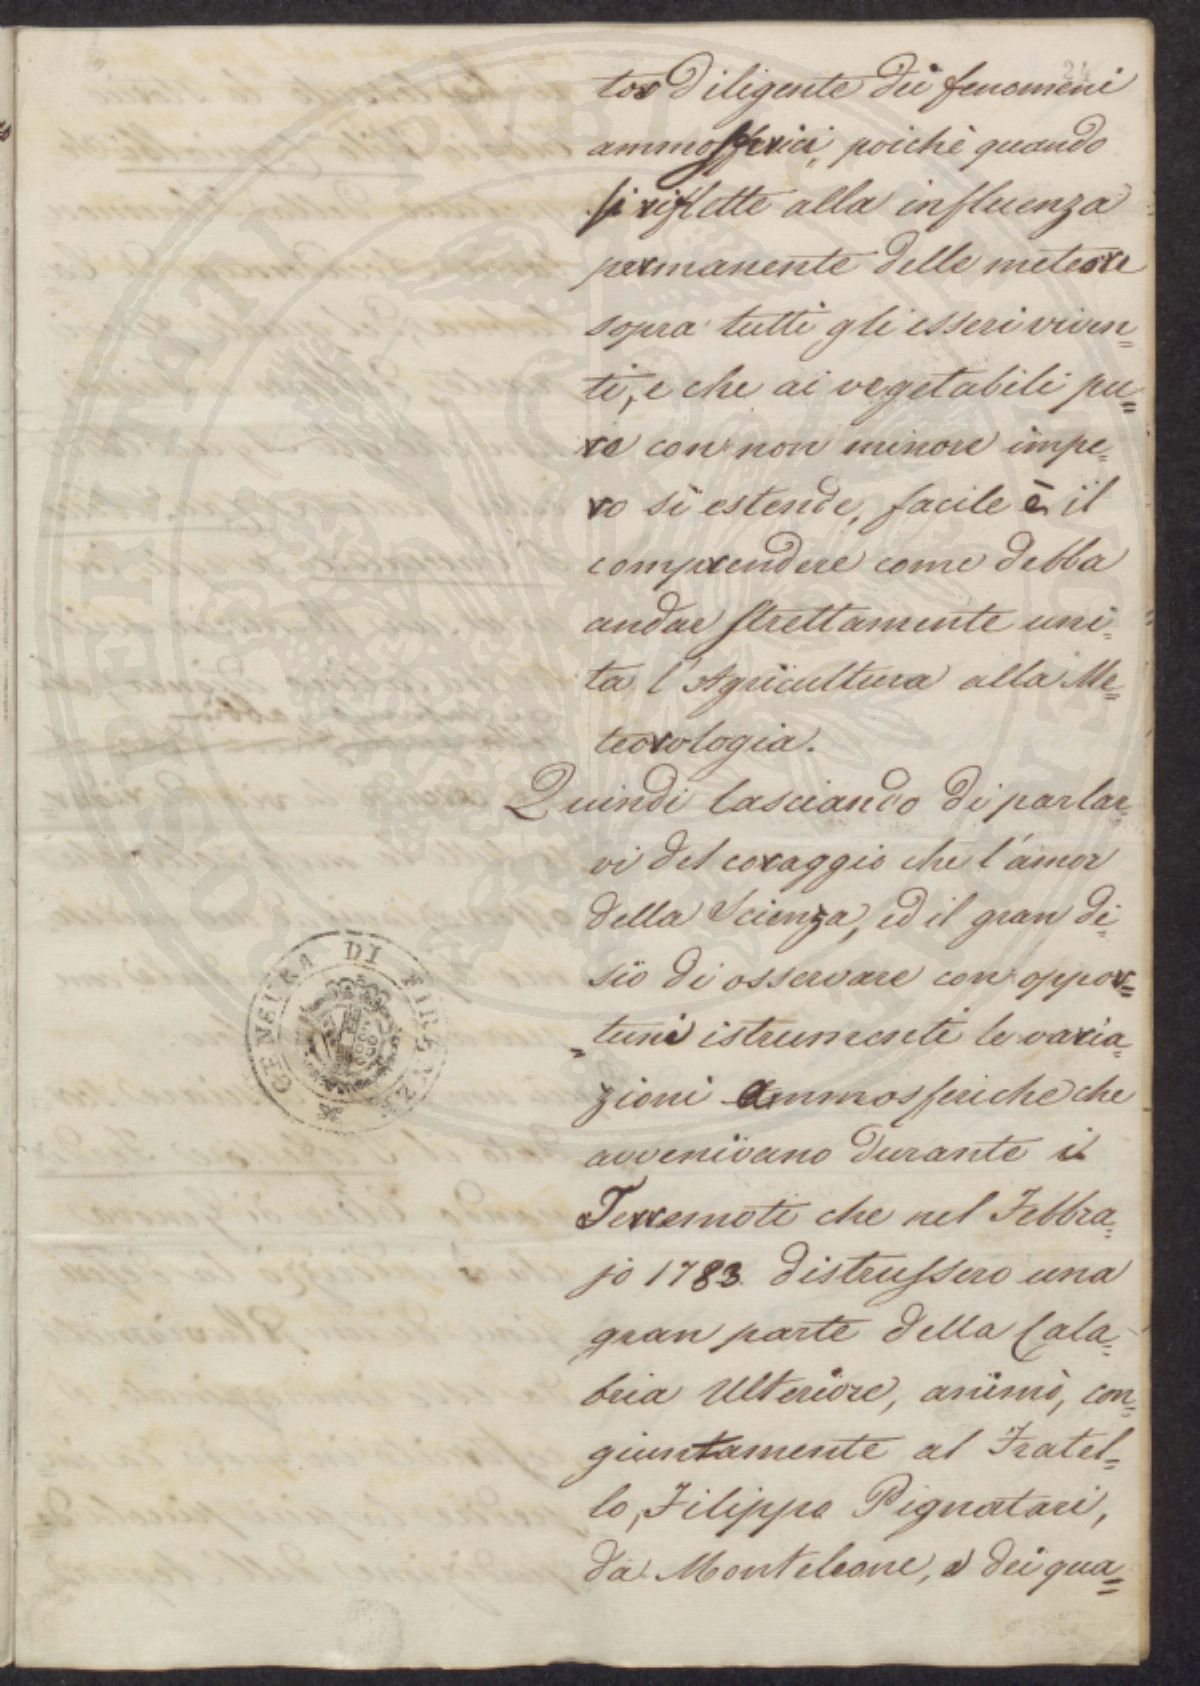 24
tor diligente dei fenomeni
ammosferici, poichè quando
si riflette alla influenza
permanente delle meteore
sopra tutti gli esseri viven=
ti, e che ai vegetabili pu=
re con non minore impe=
ro si estende, facile è il
comprendere come debba
andar strettamente uni=
ta l'Agricultura alla Me=
teorologia.
Quindi lasciando di parlar=
vi del coraggio che l'amor
della Scienza, ed il gran de=
sio di osservare con oppor=
=tuni istrumenti le varia=
zioni ammosferiche che
avvenivano durante i
Terremoti che nel Febbra=
jo 1783 distrussero una
gran parte della Cala=
bria Ulteriore, animò, con=
giuntamente al Fratel=
lo, Filippo Pignatari,
da Monteleone, e dei qua=
CENSURA DI FIRENZE
SOSPITATI PUBLICAE